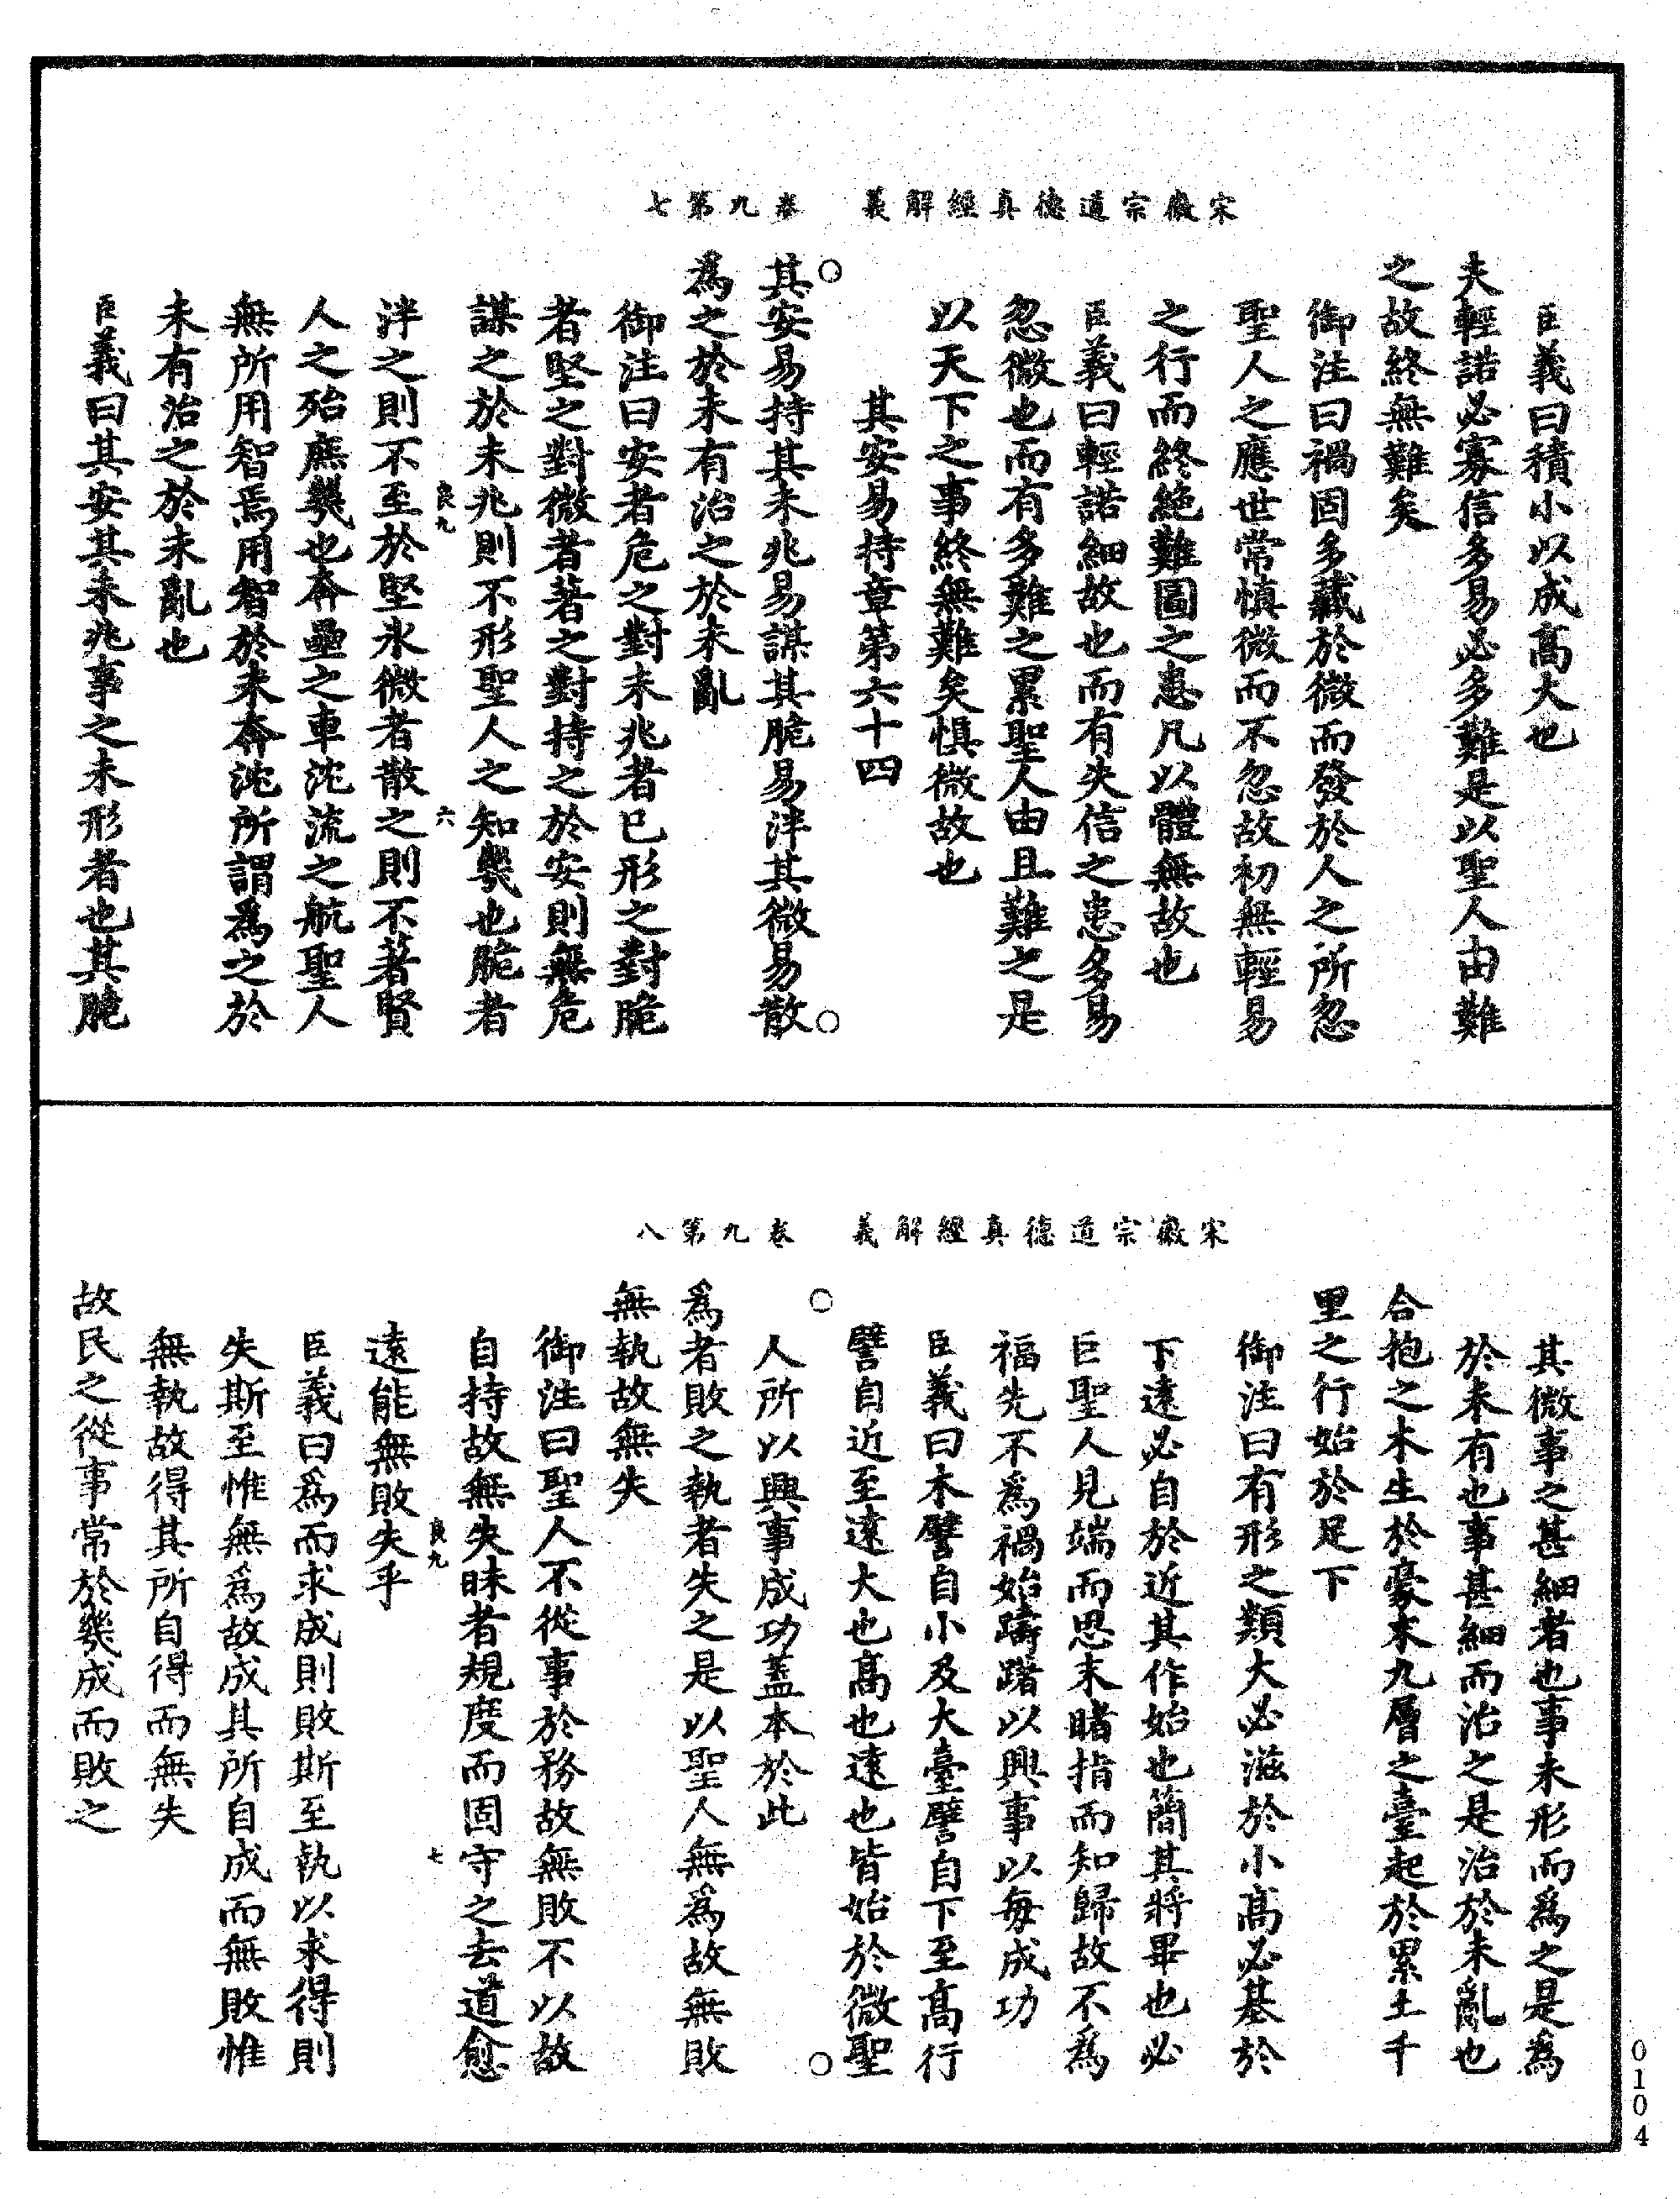 宋徽宗道德真經解義　卷九第七
臣義曰積小以成高大也
夫輕諾必寡信多易必多難是以聖人由難
之故終無難矣
御注曰禍固多藏於微而發於人之所忽
聖人之應世常慎微而不忽故初無輕易
之行而終絶難圖之患凡以體無故也
臣義曰輕諾細故也而有失信之患多易
忽微也而有多難之累聖人由且難之是
以天下之事終無難矣惧微故也
其安易持章第六十四
其安易持其未兆易謀其脆易泮其微易散
爲之於未有治之於未亂
御注曰安者危之對未兆者已形之對脆
者堅之對微者著之對持之於安則無危
謀之於未兆則不形聖人之知幾也脆者
良九　六
泮之則不至於堅氷微者散之則不著賢
人之殆庶幾也奔壘之車沈流之航聖人
無所用智焉用智於未奔沈所謂爲之於
未有治之於未亂也
臣義曰其安其未兆事之未形者也其脆
宋徽宗道德真經解義　卷九第八
其微事之甚細者也事未形而爲之是爲
於未有也事甚細而治之是治於未亂也
合抱之木生於豪末九層之臺起於累土千
里之行始於足下
御注曰有形之類大必滋於小高必基於
下遠必自於近其作始也簡其將畢也必
巨聖人見端而思末睹指而知歸故不爲
福先不爲禍始躊躇以興事以每成功
臣義曰木譬自小及大臺譬自下至高行
譬自近至遠大也高也遠也皆始於微聖
人所以興事成功蓋本於此
爲者敗之執者失之是以聖人無爲故無敗
無執故無失
御注曰聖人不從事於務故無敗不以故
自持故無失昧者規度而固守之去道愈
良九　七
遠能無敗失乎
臣義曰爲而求成則敗斯至執以求得則
失斯至惟無爲故成其所自成而無敗惟
無執故得其所自得而無失
故民之從事常於幾成而敗之
0104